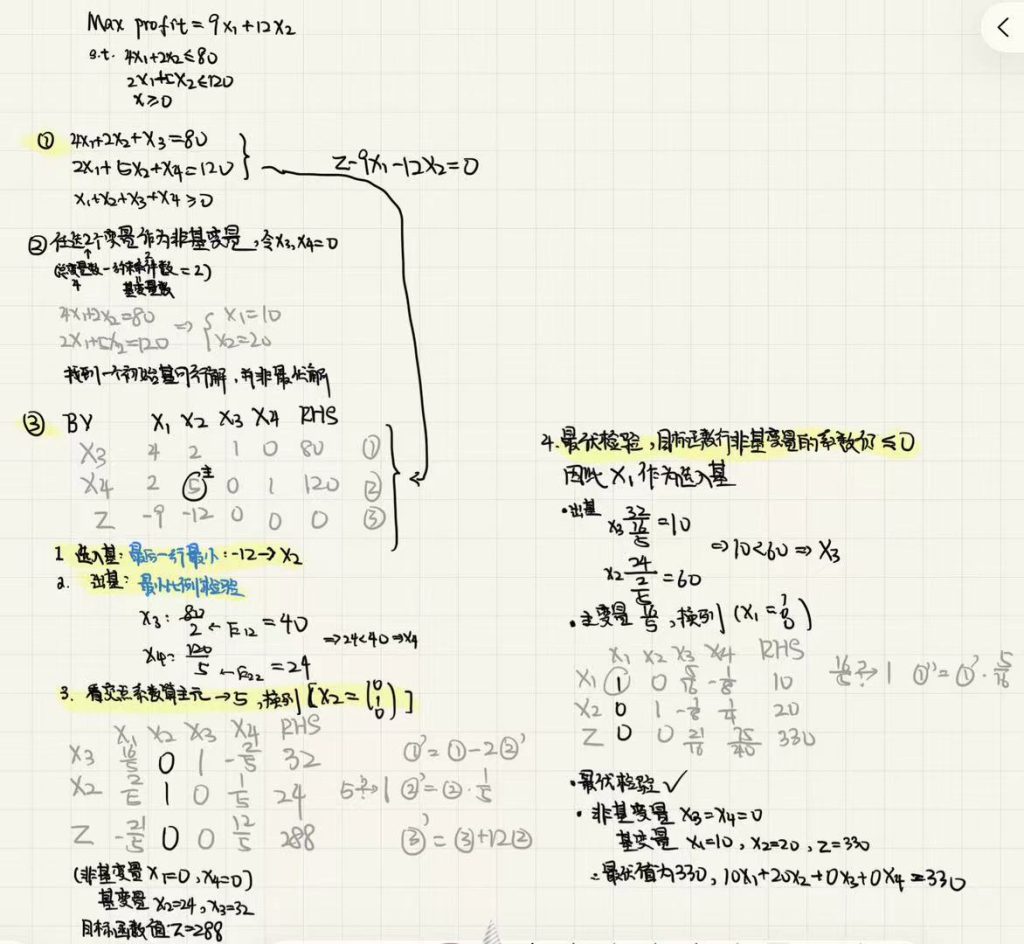 Max profit = 9x₁+12x₂
s.t. 4x₁+2x₂≤80
2x₁+5x₂≤120
x≥0
① 4x₁+2x₂+x₃=80
2x₁+5x₂+x₄=120
x₁+x₂+x₃+x₄≥0
z-9x₁-12x₂=0
② 任选2个变量作为非基变量,令x₃,x₄=0
(总变量数-约束条件数=2)
4 2
基变量数
4x₁+2x₂=80
2x₁+5x₂=120
⇒ { x₁=10
x₂=20
找到一个初始基可行解,并非最优解
③ BV X₁ X₂ X₃ X₄ RHS
X₃ 4 2 1 0 80 ①
X₄ 2 5主 0 1 120 ②
Z -9 -12 0 0 0 ③
1. 进入基:最后一行最小:-12→x₂
2. 出基:最小比例检验
x₃: 80/2 ←E₁₂ =40
x₄: 120/5 ←E₂₂ =24
⇒24<40⇒x₄
3. 看交点系数算主元→5,换列[x₂=(0 1 0)]
X₁ X₂ X₃ X₄ RHS
X₃ 16/5 0 1 -2/5 32 ①'=①-2②'
X₂ 2/5 1 0 1/5 24 5→1 ②'=②·1/5
Z -21/5 0 0 12/5 288 ③'=③+12②
(非基变量x₁=0,x₄=0)
基变量x₂=24,x₃=32
目标函数值:Z=288
4. 最优检验,目标函数行非基变量的系数仍≤0
因此X₁作为进入基
·出基
x₃ 32/(16/5) =10
x₂ 24/(2/5) =60
⇒10<60⇒X₃
·主变量16/5,换列(X₁=(1 0 0))
X₁ X₂ X₃ X₄ RHS
X₁ 1 0 5/16 -1/8 10 16/5→1 ①''=①'·5/16
X₂ 0 1 -1/8 1/4 20
Z 0 0 21/16 75/40 330
·最优检验✓
·非基变量 x₃=x₄=0
基变量 x₁=10,x₂=20,z=330
∴最优值为330,10x₁+20x₂+0x₃+0x₄=330